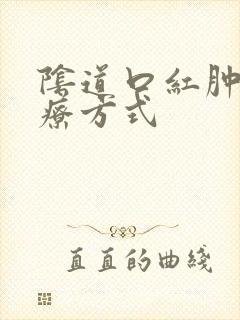 陰道口紅肿
療方式
直直的曲綫